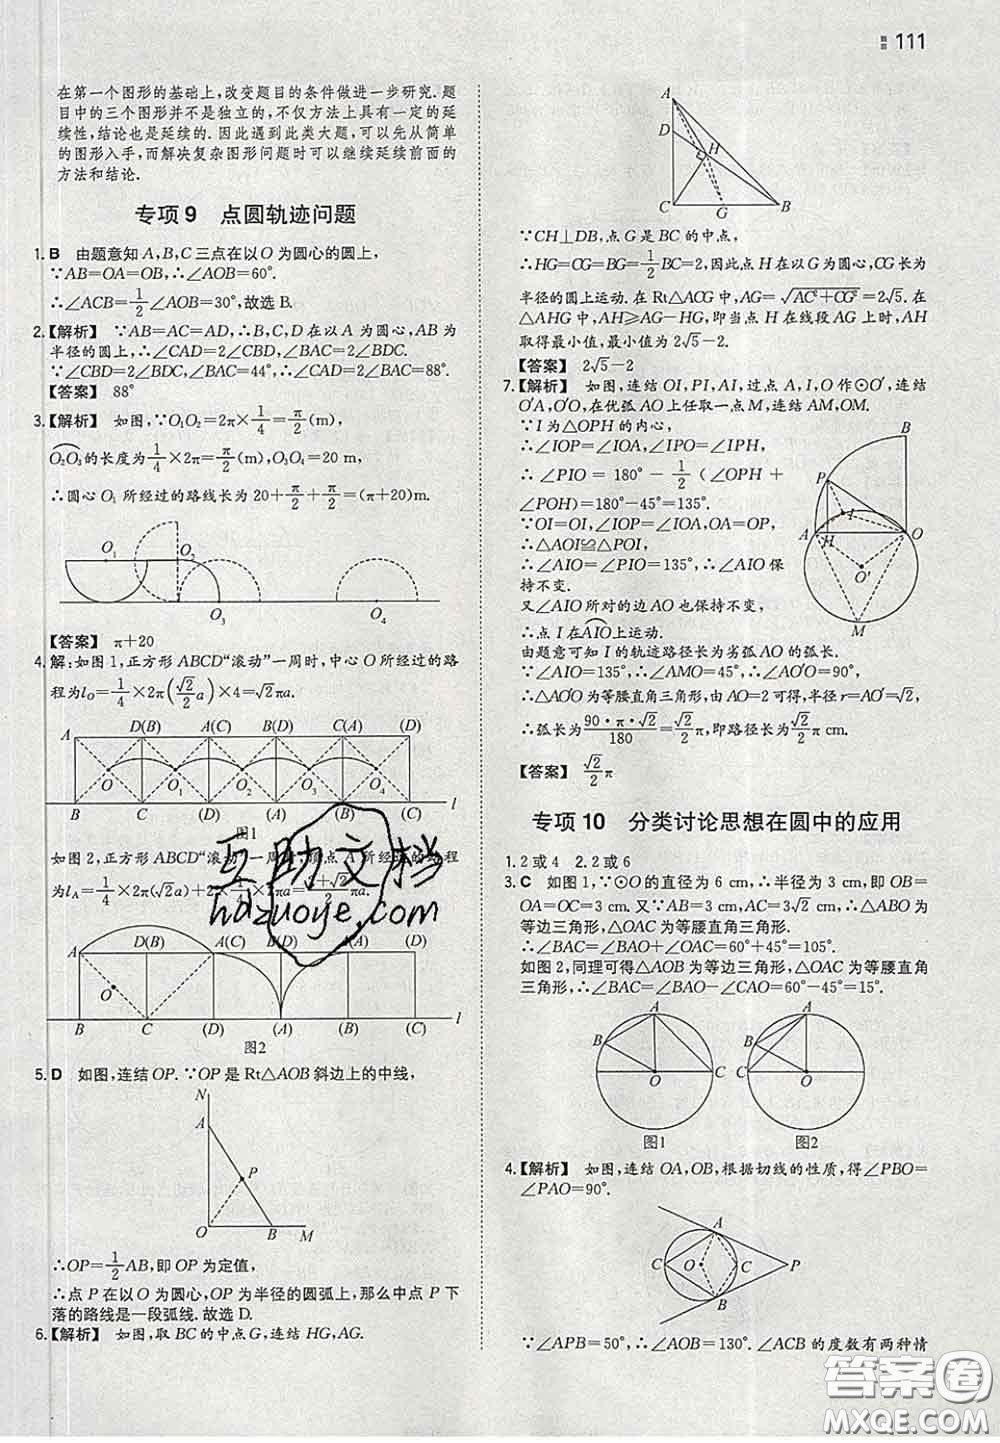 111
在第一个图形的基础上,改变题目的条件做进一步研究.题
目中的三个图形并不是独立的,不仅方法上具有一定的延
续性,结论也是延续的.因此遇到此类大题,可以先从简单
的图形入手,而解决复杂图形问题时可以继续延续前面的
方法和结论.
专项9 点圆轨迹问题
1. B 由题意知A,B,C三点在以O为圆心的圆上,
∵AB=OA=OB,∴∠AOB=60°.
∴∠ACB=1/2∠AOB=30°,故选B.
2.【解析】 ∵AB=AC=AD,∴B,C,D在以A为圆心,AB为
半径的圆上,∴∠CAD=2∠CBD,∠BAC=2∠BDC.
∵∠CBD=2∠BDC,∠BAC=44°,∴∠CAD=2∠BAC=88°.
【答案】 88°
3.【解析】 如图,∵O₁O₂=2π×1/4=π/2(m),
O₂O₃的长度为1/4×2π=π/2(m),O₃O₄=20 m,
∴圆心O₁所经过的路线长为20+π/2+π/2=(π+20)m.
O₁ O₂
O₃ O₄
【答案】 π+20
4.解:如图1,正方形ABCD“滚动”一周时,中心O所经过的路
程为l_O=1/4×2π(√2/2 a)×4=√2πa.
A D(B) A(C) B(D) C(A) (D)
O O₁ O₂ O₃ O₄
B C (D) (A) (B) (C) l
图1
如图2,正方形ABCD“滚动”一周时,顶点A所经过的路程
为l_A=1/4×2π(√2a)+1/4×2πa×2=
A D(B) A(C) B(D) (D)
O
B C (D) (A) (B) (C) l
图2
5. D 如图,连结OP.∵OP是Rt△AOB斜边上的中线,
N
A
P
O B M
∴OP=1/2AB,即OP为定值,
∴点P在以O为圆心,OP为半径的圆弧上,那么中点P下
落的路线是一段弧线.故选D.
6.【解析】 如图,取BC的中点G,连结HG,AG.
A
D
H
C G B
∵CH⊥DB,点G是BC的中点,
∴HG=CG=BG=1/2BC=2,因此点H在以G为圆心,CG长为
半径的圆上运动.在Rt△ACG中,AG=√(AC²+CG²)=2√5.在
△AHG中,AH≥AG-HG,即当点H在线段AG上时,AH
取得最小值,最小值为2√5-2.
【答案】 2√5-2
7.【解析】 如图,连结OI,PI,AI,过点A,I,O作⊙O′,连结
O′A,O′O,在优弧AO上任取一点M,连结AM,OM.
∵I为△OPH的内心,
∴∠IOP=∠IOA,∠IPO=∠IPH,
∴∠PIO=180°-1/2(∠OPH+
∠POH)=180°-45°=135°.
∵OI=OI,∠IOP=∠IOA,OA=OP,
∴△AOI≌△POI,
∴∠AIO=∠PIO=135°,∴∠AIO保
持不变.
又∠AIO所对的边AO也保持不变,
∴点I在AIO上运动.
由题意可知I的轨迹路径长为劣弧AO的弧长.
∵∠AIO=135°,∴∠AMO=45°,∴∠AO′O=90°,
∴△AO′O为等腰直角三角形,由AO=2可得,半径r=AO′=√2,
∴弧长为90·π·√2/180=√2/2π,即路径长为√2/2π cm.
B
P
I
A H O
O′
M
【答案】 √2/2π
专项10 分类讨论思想在圆中的应用
1. 2或4 2. 2或6
3. C 如图1,∵⊙O的直径为6 cm,∴半径为3 cm,即OB=
OA=OC=3 cm.又∵AB=3 cm,AC=3√2 cm,∴△ABO为
等边三角形,△OAC为等腰直角三角形.
∴∠BAC=∠BAO+∠OAC=60°+45°=105°.
如图2,同理可得△OAB为等边三角形,△OAC为等腰直角
三角形,∴∠BAC=∠BAO-∠CAO=60°-45°=15°.
A
B
O C
图1
A
B
C O
图2
4.【解析】 如图,连结OA,OB,根据切线的性质,得∠PBO=
∠PAO=90°.
A
C O C P
B
∵∠APB=50°,∴∠AOB=130°.∠ACB的度数有两种情
互助文档
hdzuoye.com
答案圈
MXQE.COM